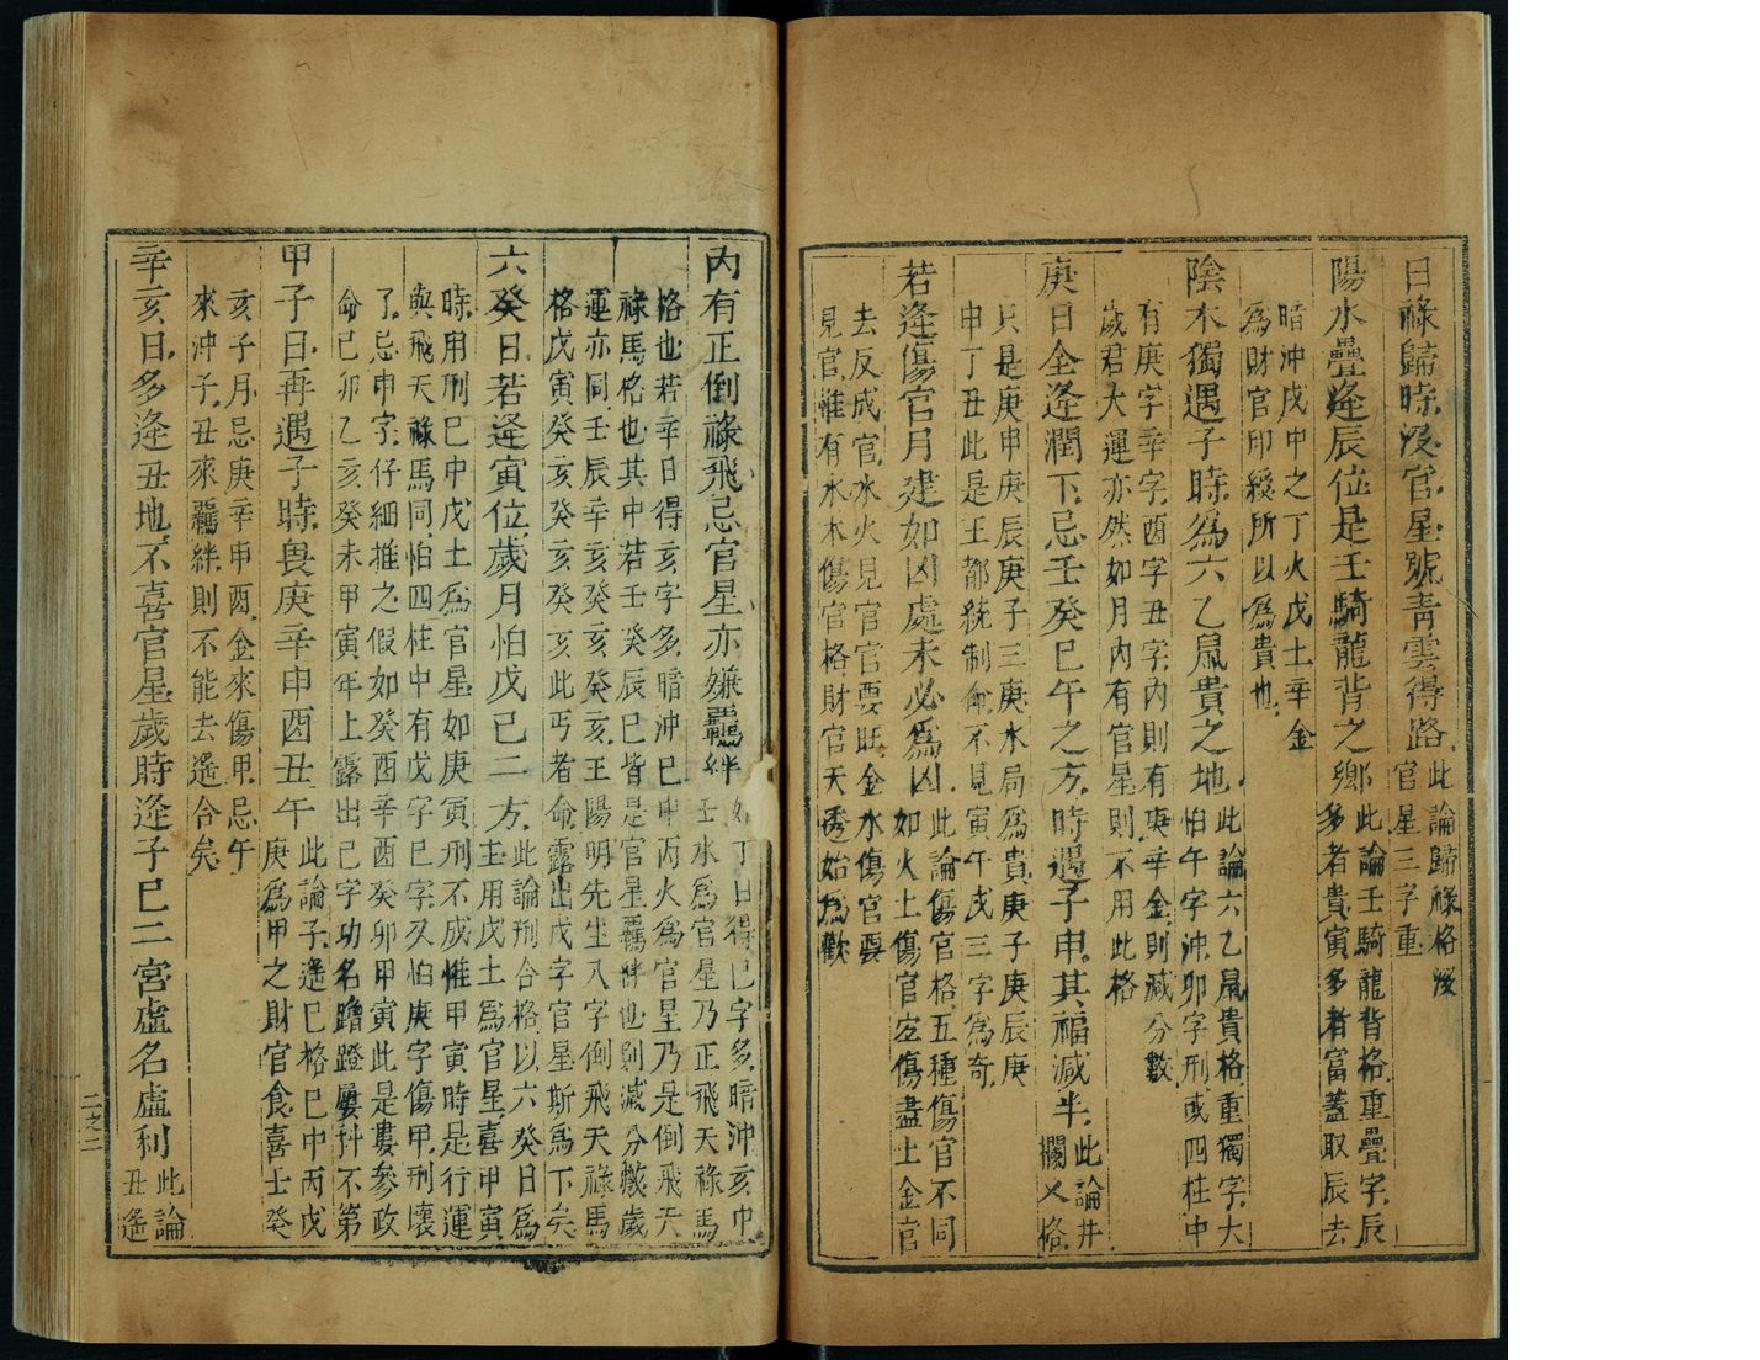 日祿歸時沒官星號青雲得路此論歸祿格沒
官星三字重
陽水疊逢辰位是壬騎龍背之鄉此論壬騎龍背格重疊字辰
多者貴寅多者富蓋取辰去
暗沖戌中之丁火戊土辛金
為財官印綬所以為貴也
陰木獨遇子時為六乙鼠貴之地此論六乙鼠貴格重獨字大
怕午字沖卯字刑或四柱中
有庚字辛字酉字丑字內則有庚辛金則減分數
歲君大運亦然如月內有官星則不用此格
庚日全逢潤下忌壬癸巳午之方時遇子申其福減半此論井
欄乂格
只是庚申庚辰庚子三庚水局為貴庚子庚辰庚
申丁丑此是王都統制命不見寅午戌三字為奇
若逢傷官月建如凶處未必為凶此論傷官格五種傷官不同
如火土傷官宜傷盡土金官
去反成官水火見官官要旺金水傷官要
見官惟有水木傷官格財官天透始為歡
丙有正倒祿飛忌官星亦嫌羈絆如丁日得巳字多暗沖亥中
壬水為官星乃正飛天祿馬
格也若辛日得亥字多暗沖巳中丙火為官星乃是倒飛天
祿馬格也其中若壬癸辰巳皆是官星羈絆也則減分數歲
運亦同壬辰辛亥癸亥癸亥王陽明先生入字倒飛天祿馬
格戊寅癸亥癸亥癸亥此丐者命露出戊字官星斯為下矣
六癸日若逢寅位歲月怕戊己二方此論刑合格以六癸日為
主用戊土為官星喜甲寅
時用刑巳中戊土為官星如庚寅刑不成惟甲寅時是行運
與飛天祿馬同怕四柱中有戊字巳字又怕庚字傷甲刑壞
了忌申字仔細推之假如癸酉辛酉癸卯甲寅此是婁參政
命己卯乙亥癸未甲寅年上露出己字功名蹭蹬屢科不第
甲子日再遇子時畏庚辛申酉丑午此論子遙巳格巳中丙戊
庚為甲之財官食喜壬癸
亥子月忌庚辛申酉金來傷甲忌午
來沖子丑來羈絆則不能去遙合矣
辛亥日多逢丑地不喜官星歲時逢子巳二宮虛名虛利此論
丑遙
二之二